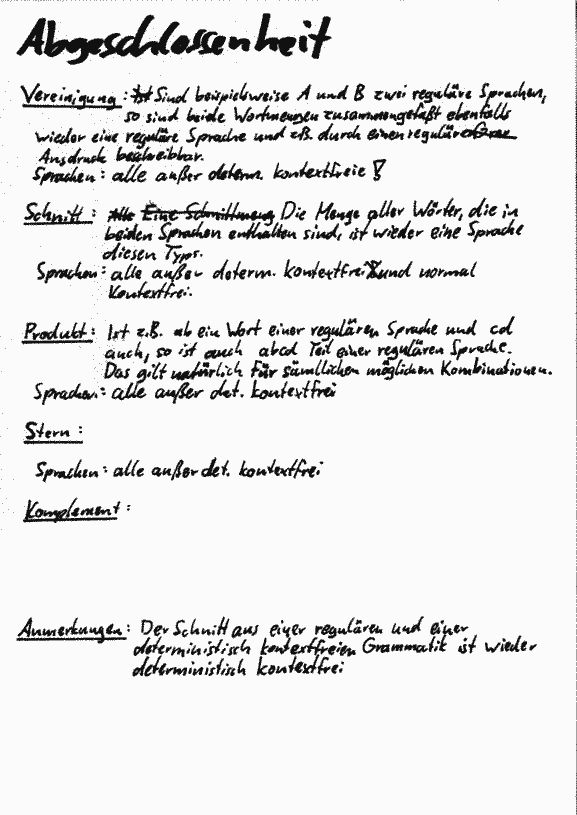 Abgeschlossenheit
Vereinigung: Ist Sind beispielsweise A und B zwei reguläre Sprachen,
so sind beide Wortmengen zusammengefaßt ebenfalls
wieder eine reguläre Sprache und z.B. durch einen regulären
Ausdruck beschreibbar.
Sprachen: alle außer determ. kontextfreie !
Schnitt: Alle Eine Schnittmenge Die Menge aller Wörter, die in
beiden Sprachen enthalten sind, ist wieder eine Sprache
diesen Typs.
Sprachen: alle außer determ. kontextfrei und normal
kontextfrei.
Produkt: Ist z.B. ab ein Wort einer regulären Sprache und cd
auch, so ist auch abcd Teil einer regulären Sprache.
Das gilt natürlich für sämtlichen möglichen Kombinationen.
Sprachen: alle außer det. kontextfrei
Stern:
Sprachen: alle außer det. kontextfrei
Komplement:
Anmerkungen: Der Schnitt aus einer regulären und einer
deterministisch kontextfreien Grammatik ist wieder
deterministisch kontextfrei